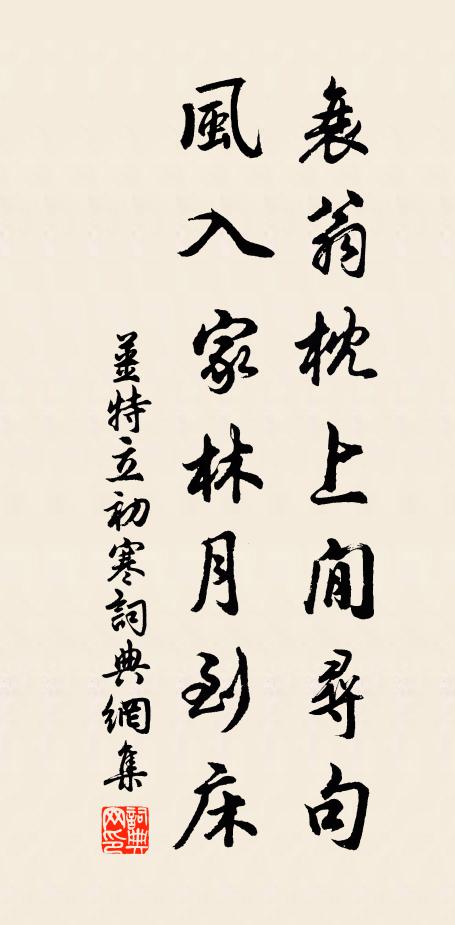 衰翁枕上閒尋句
風入家林月到床
薑特立初寒詞典網集
詞典網印